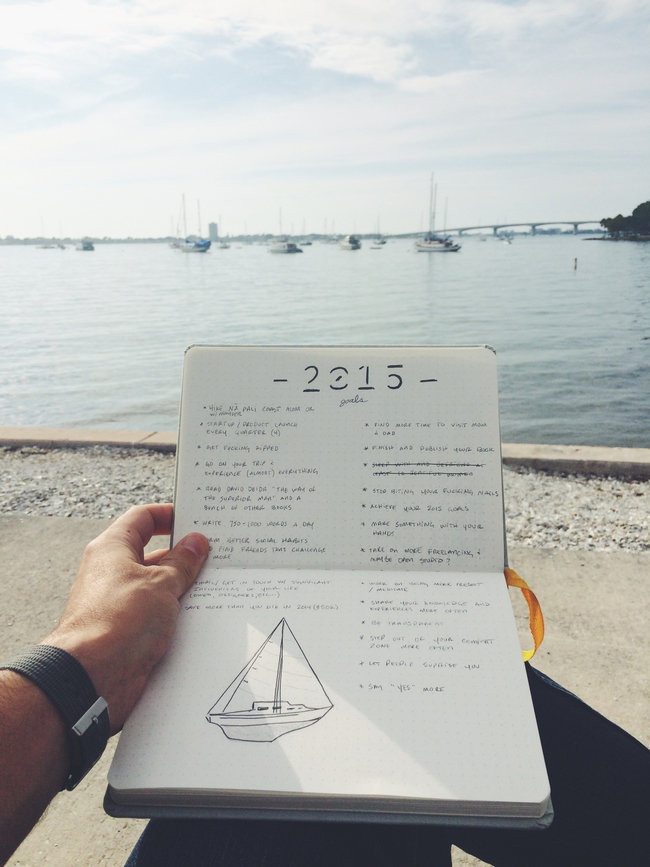 - 2015 -
goals
* HIKE NĀ PALI COAST MORE OR
* STARTUP / PRODUCT LAUNCH
EVERY QUARTER (4)
* GET FUCKING RIPPED
* GO ON YOUR TRIP &
EXPERIENCE (ALMOST) EVERYTHING
* READ DAVID DEIDA "THE WAY OF
THE SUPERIOR MAN" AND A
BUNCH OF OTHER BOOKS
* WRITE 750-1000 WORDS A DAY
BETTER SOCIAL HABITS
FIND FRIENDS THAT CHALLENGE
MORE
GET IN TOUCH W/ SIGNIFICANT
INFLUENCES IN YOUR LIFE
SAVE MORE THAN YOU DID IN 2014
* FIND MORE TIME TO VISIT MOM
& DAD
* FINISH AND PUBLISH YOUR BOOK
* STOP BITING YOUR FUCKING NAILS
* ACHIEVE YOUR 2015 GOALS
* MAKE SOMETHING WITH YOUR
HANDS
* TAKE ON MORE FREELANCING &
MAYBE OPEN STUDIO?
* WORK ON BEING MORE PRESENT
/ MEDITATE
* SHARE YOUR KNOWLEDGE AND
EXPERIENCES MORE OFTEN
* BE TRANSPARENT
* STEP OUT OF YOUR COMFORT
ZONE MORE OFTEN
* LET PEOPLE SURPRISE YOU
* SAY "YES" MORE